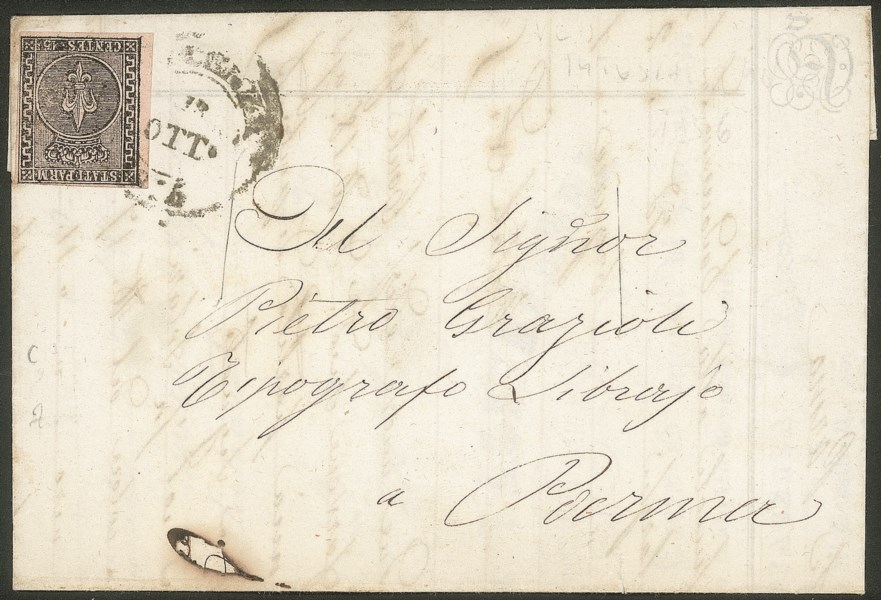 STATI PARM
CENTES. 15
OTT.
Del Signor
Pietro Grazioli
Tipografo Librajo
a Parma